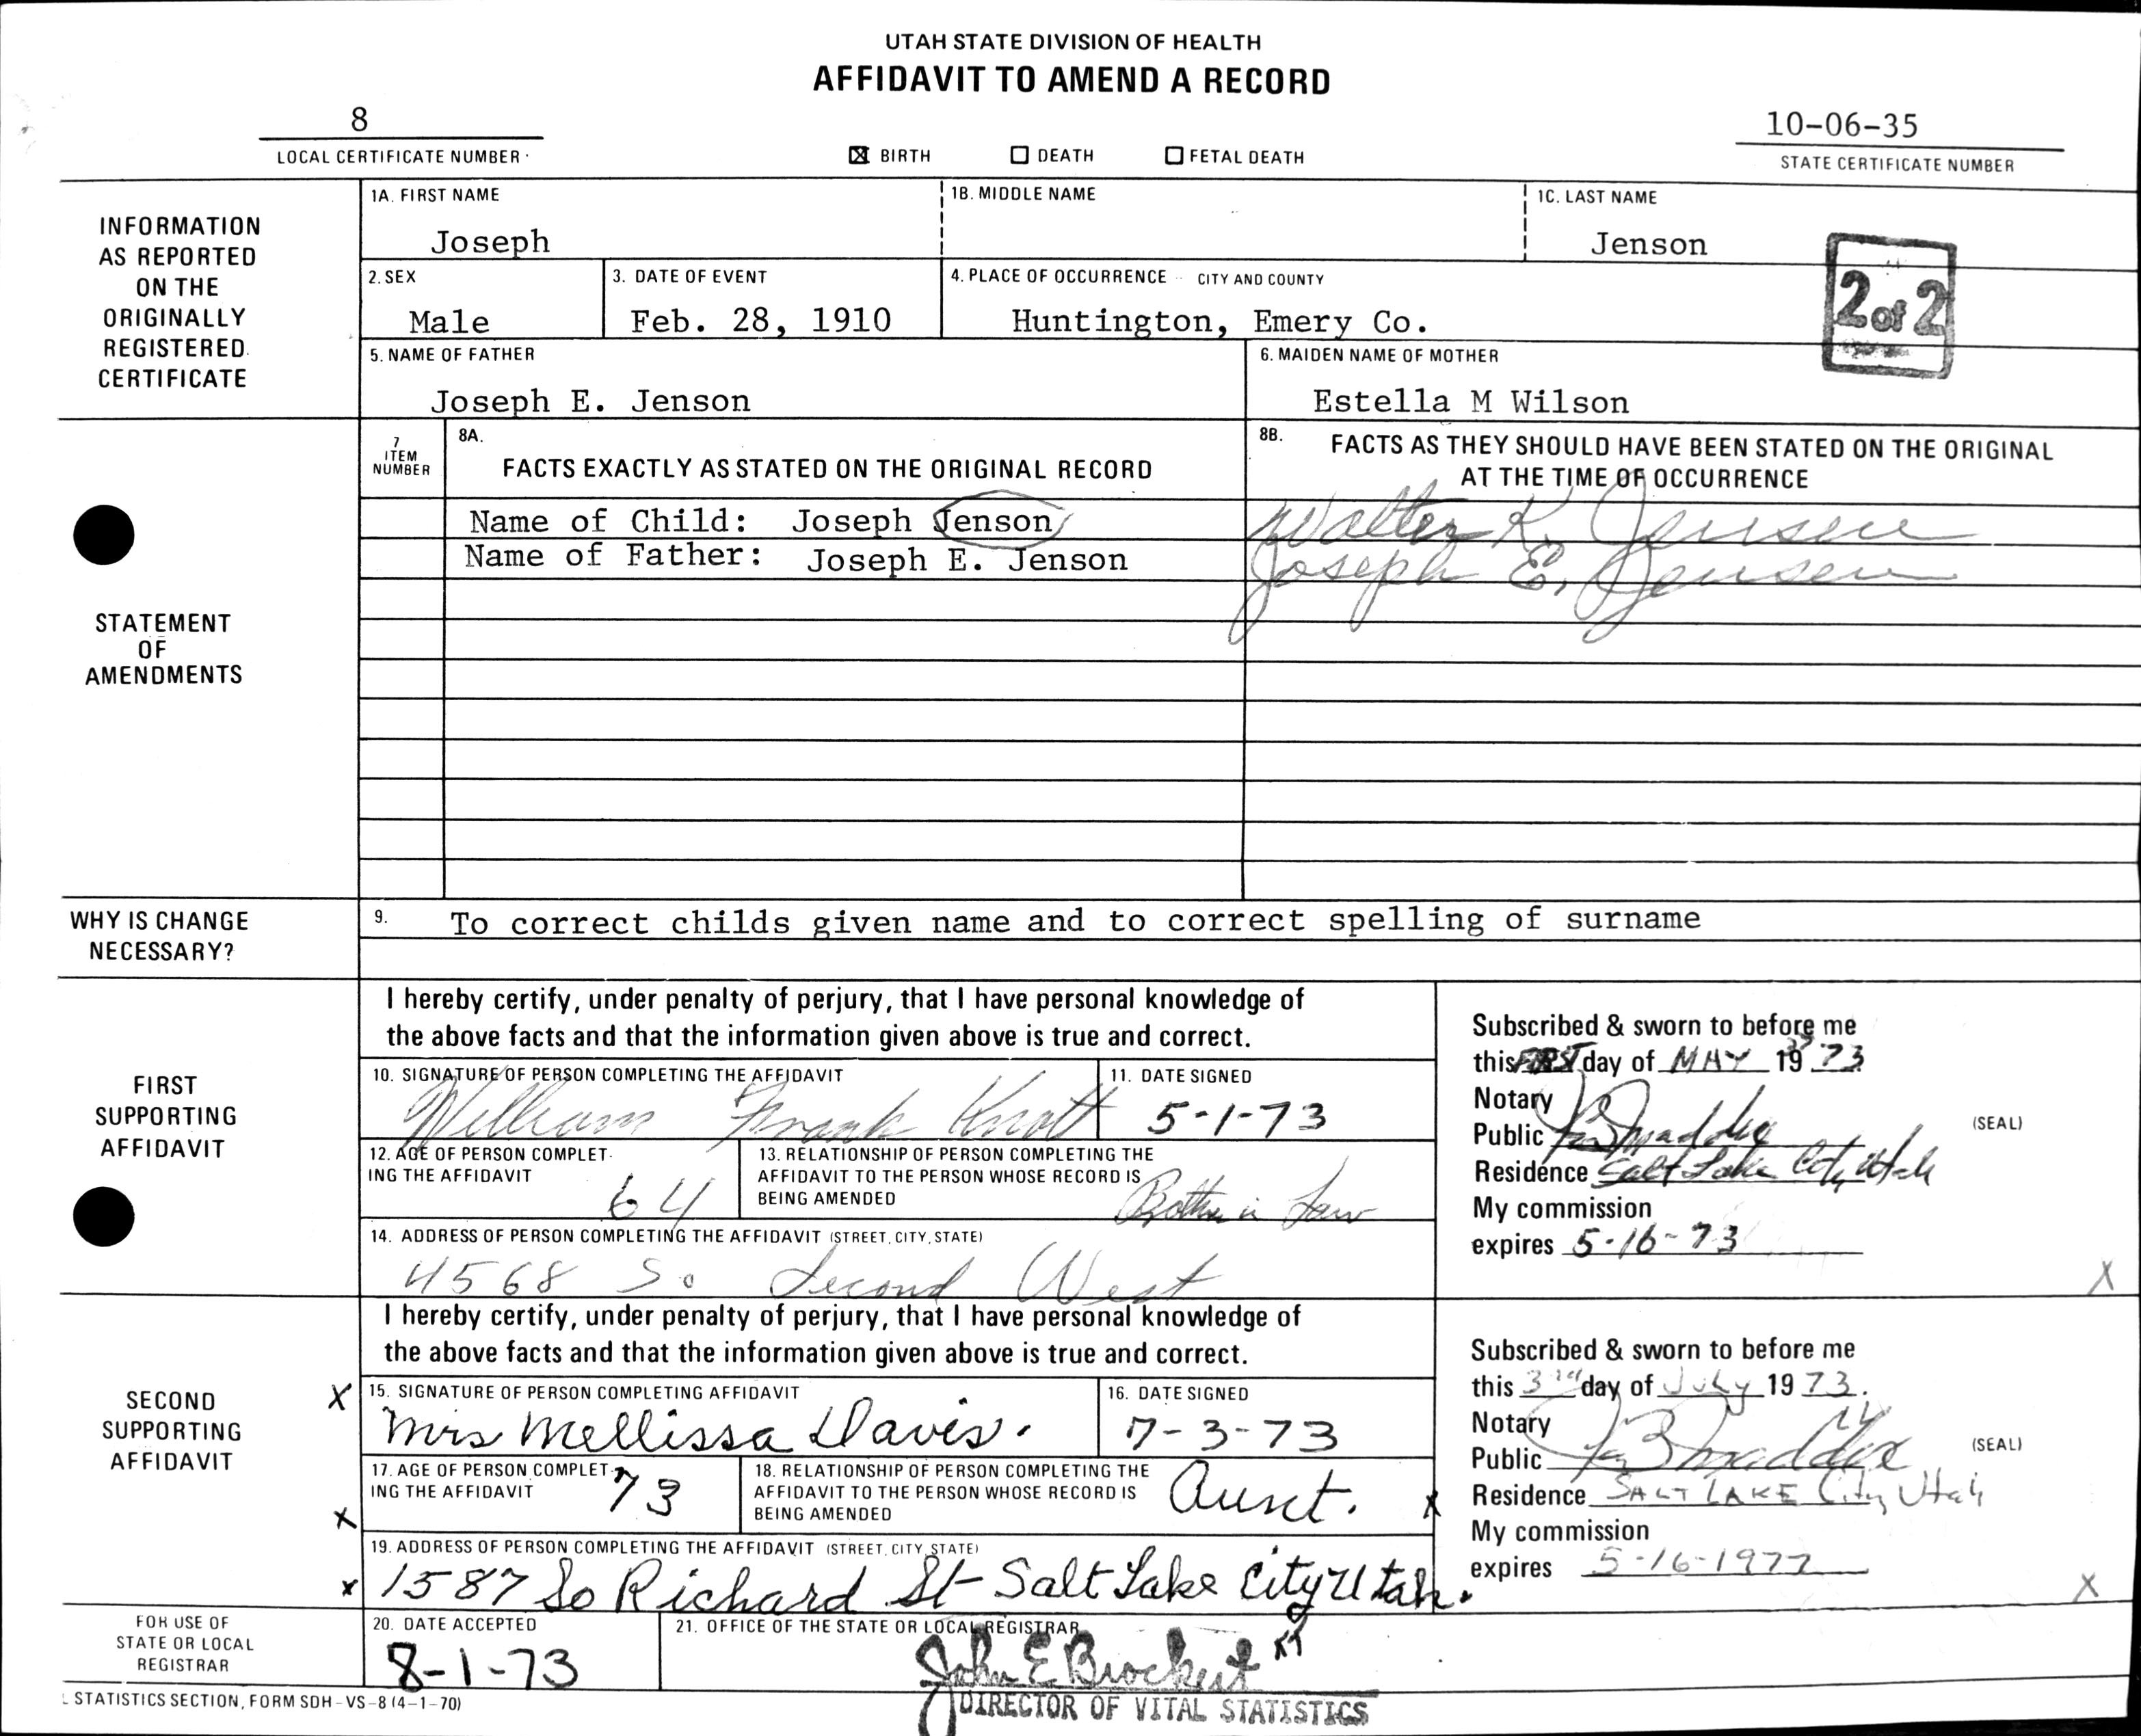 UTAH STATE DIVISION OF HEALTH
AFFIDAVIT TO AMEND A RECORD
8
LOCAL CERTIFICATE NUMBER
☒ BIRTH ☐ DEATH ☐ FETAL DEATH
10-06-35
STATE CERTIFICATE NUMBER
INFORMATION
AS REPORTED
ON THE
ORIGINALLY
REGISTERED
CERTIFICATE
1A. FIRST NAME
Joseph
1B. MIDDLE NAME
1C. LAST NAME
Jenson
2 of 2
2. SEX
Male
3. DATE OF EVENT
Feb. 28, 1910
4. PLACE OF OCCURRENCE CITY AND COUNTY
Huntington, Emery Co.
5. NAME OF FATHER
Joseph E. Jenson
6. MAIDEN NAME OF MOTHER
Estella M Wilson
STATEMENT
OF
AMENDMENTS
7
ITEM
NUMBER
8A.
FACTS EXACTLY AS STATED ON THE ORIGINAL RECORD
8B. FACTS AS THEY SHOULD HAVE BEEN STATED ON THE ORIGINAL
AT THE TIME OF OCCURRENCE
Name of Child: Joseph Jenson
Walter K. Jensen
Name of Father: Joseph E. Jenson
Joseph E. Jensen
WHY IS CHANGE
NECESSARY?
9. To correct childs given name and to correct spelling of surname
FIRST
SUPPORTING
AFFIDAVIT
I hereby certify, under penalty of perjury, that I have personal knowledge of
the above facts and that the information given above is true and correct.
10. SIGNATURE OF PERSON COMPLETING THE AFFIDAVIT
William Frank Knott
11. DATE SIGNED
5-1-73
12. AGE OF PERSON COMPLET-
ING THE AFFIDAVIT
64
13. RELATIONSHIP OF PERSON COMPLETING THE
AFFIDAVIT TO THE PERSON WHOSE RECORD IS
BEING AMENDED
Brother in Law
14. ADDRESS OF PERSON COMPLETING THE AFFIDAVIT (STREET, CITY, STATE)
4568 So Second West
Subscribed & sworn to before me
this FIRST day of MAY 1973
Notary
Public
(SEAL)
Residence Salt Lake City, Utah
My commission
expires 5-16-73
X
SECOND
SUPPORTING
AFFIDAVIT
I hereby certify, under penalty of perjury, that I have personal knowledge of
the above facts and that the information given above is true and correct.
X
15. SIGNATURE OF PERSON COMPLETING AFFIDAVIT
Mrs Mellissa Davis.
16. DATE SIGNED
7-3-73
X
17. AGE OF PERSON COMPLET-
ING THE AFFIDAVIT
73
18. RELATIONSHIP OF PERSON COMPLETING THE
AFFIDAVIT TO THE PERSON WHOSE RECORD IS
BEING AMENDED
Aunt.
X
X
19. ADDRESS OF PERSON COMPLETING THE AFFIDAVIT (STREET, CITY, STATE)
1587 So Richard St - Salt Lake City Utah.
Subscribed & sworn to before me
this 3rd day of July 1973.
Notary
Public
(SEAL)
Residence SALT LAKE City, Utah
My commission
expires 5-16-1977
X
FOR USE OF
STATE OR LOCAL
REGISTRAR
20. DATE ACCEPTED
8-1-73
21. OFFICE OF THE STATE OR LOCAL REGISTRAR
John E Brockert
DIRECTOR OF VITAL STATISTICS
L STATISTICS SECTION, FORM SDH-VS-8 (4-1-70)